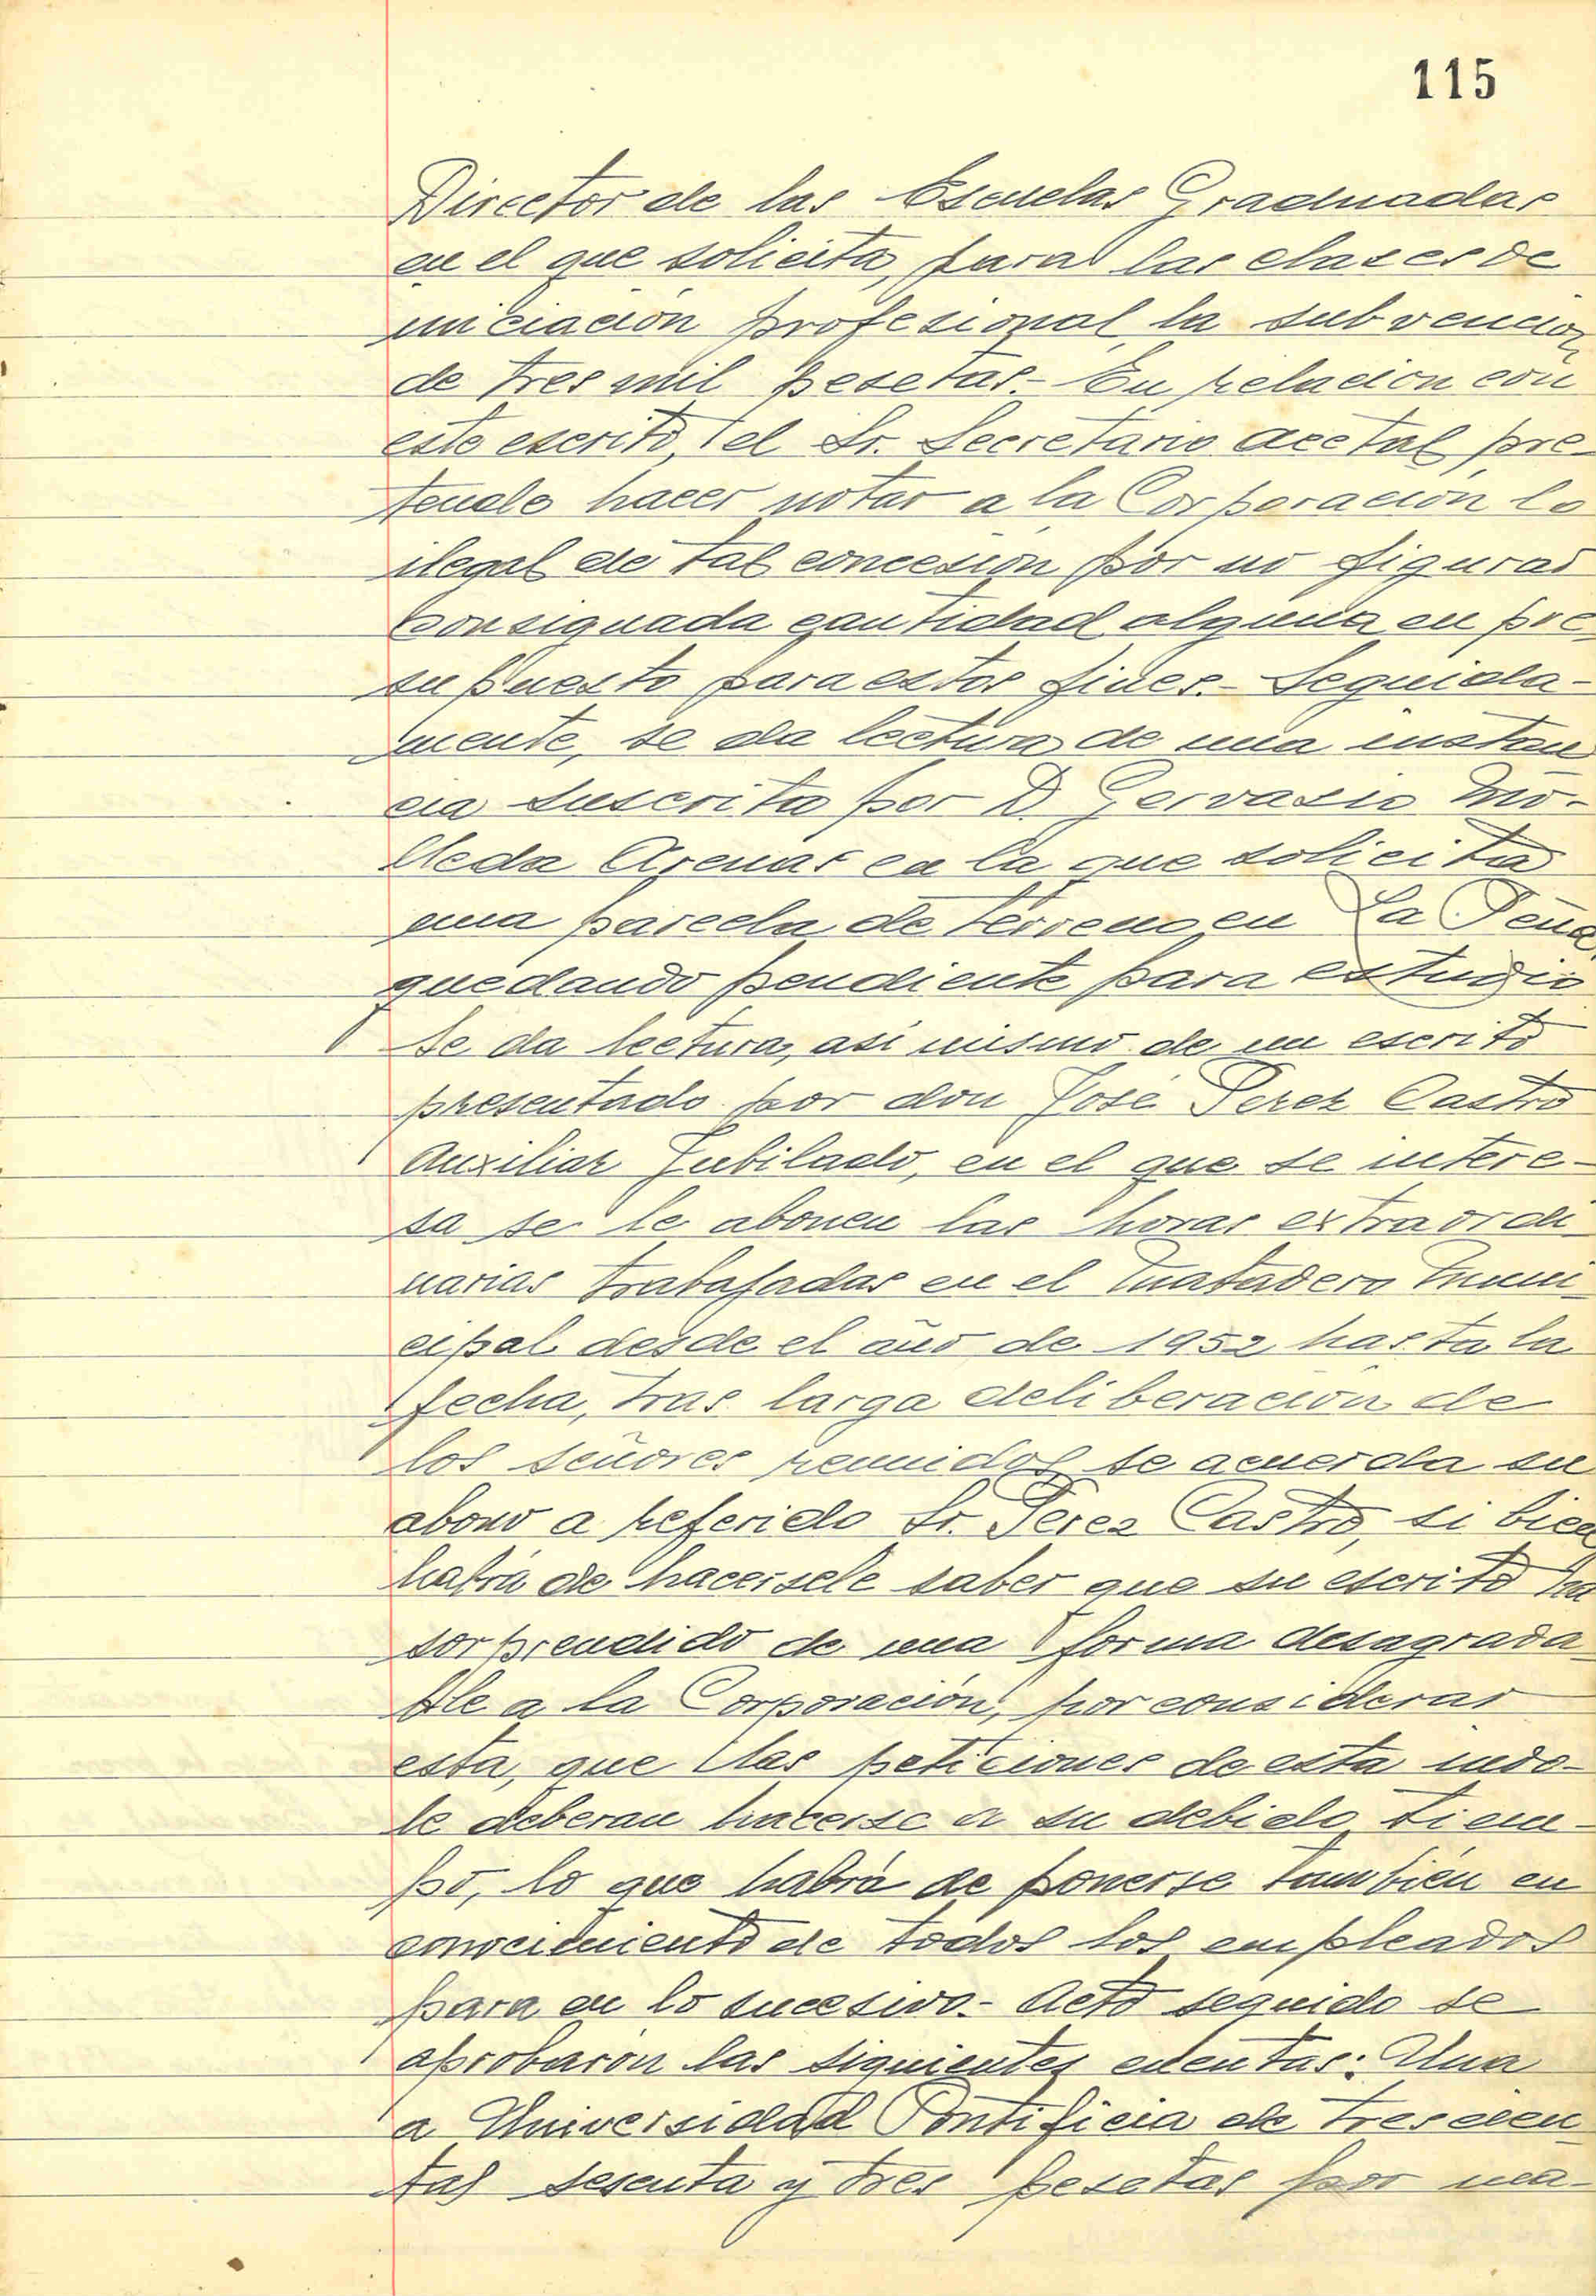 115
Director de las Escuelas Graduadas
en el que solicita, para las clases de
iniciación profesional, la subvención
de tres mil pesetas.- En relación con
este escrito, el Sr. Secretario acctal pre-
tende hacer notar a la Corporación lo
ilegal de tal concesión por no figurar
consignada cantidad alguna en pre-
supuesto para estos fines.- Seguida-
mente, se da lectura de una instan
cia suscrita por D. Gervasio Mo-
lleda Arenas en la que solicita
una parcela de terreno en La Peña,
quedando pendiente para estudio
Se da lectura, así mismo de un escrito
presentado por don José Perez Castro
Auxiliar Jubilado, en el que se intere-
sa se le abonen las horas extraordi
narias trabajadas en el Matadero Muni
cipal desde el año de 1952 hasta la
fecha, tras larga deliberación de
los señores reunidos se acuerda su
abono a referido Sr. Perez Castro, si bien
habrá de hacersele saber que su escrito ha
sorprendido de una forma desagrada
ble a la Corporación, por considerar
esta, que las peticiones de esta indo-
le deberan hacerse a su debido tiem-
po, lo que habrá de ponerse también en
conocimiento de todos los empleados
para en lo sucesivo.- Acto seguido se
aprobarón las siguientes cuentas: Una
a Universidad Pontificia de trescien
tas sesenta y tres pesetas por ma-